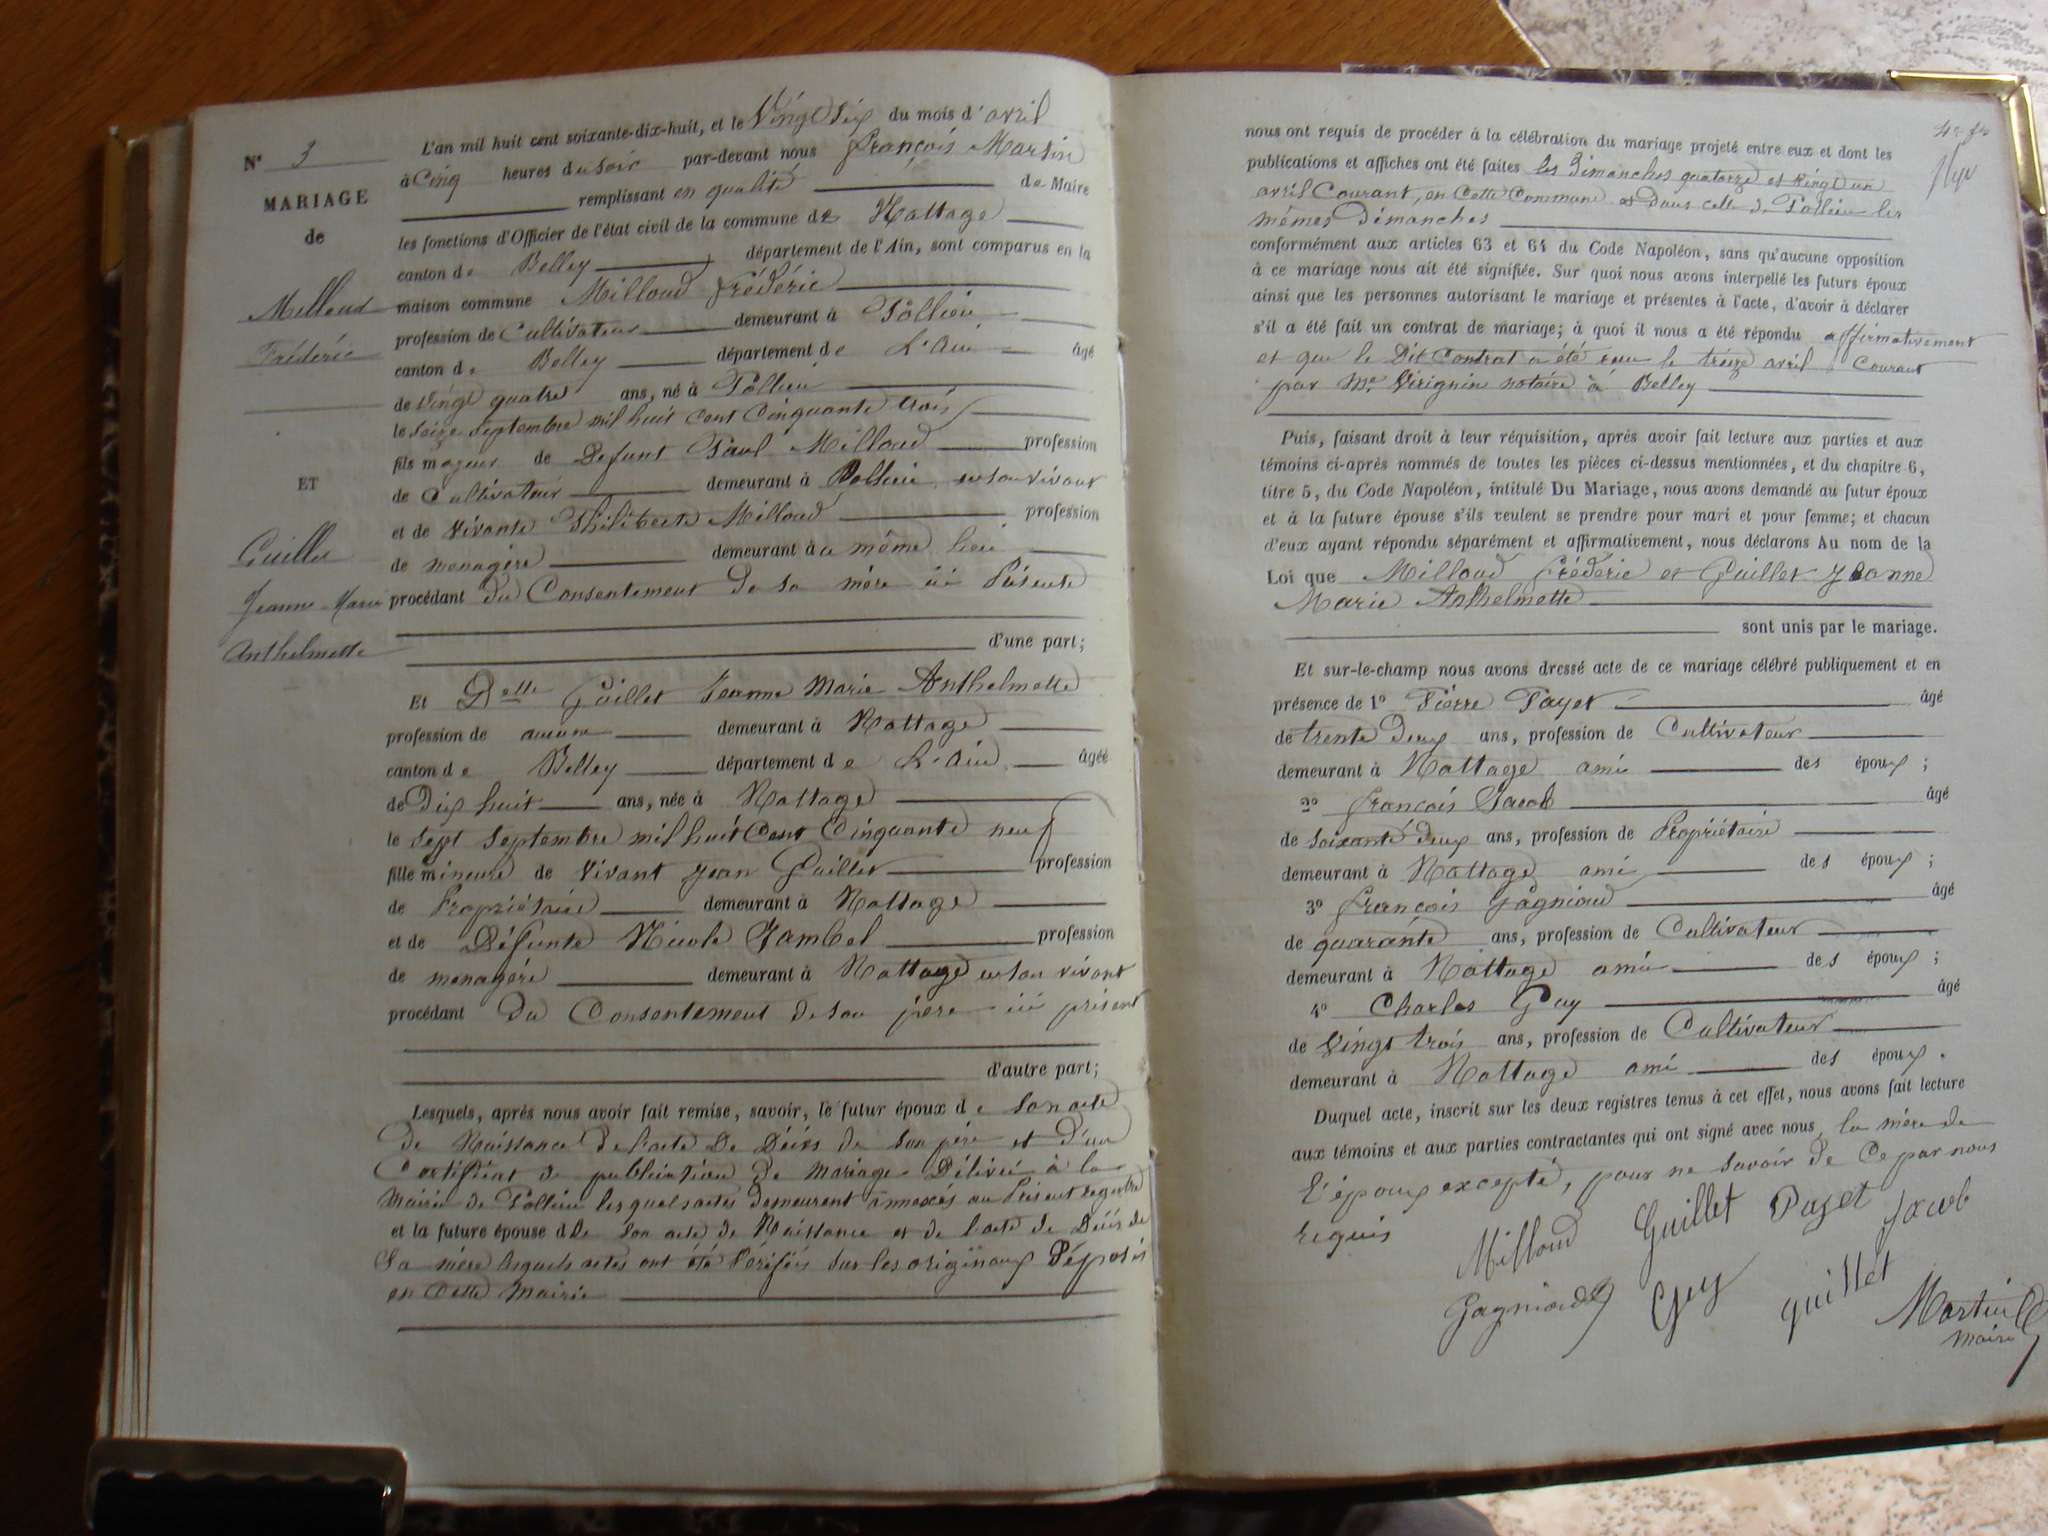 N° 3
MARIAGE
de
Milloud
Frédéric
ET
Guillet
Jeanne Marie
Anthelmette
L'an mil huit cent soixante-dix-huit, et le Vingt Six du mois d'avril
à Cinq heures du soir par-devant nous François Martin
remplissant en qualité de Maire
les fonctions d'Officier de l'état civil de la commune de Nattage
canton de Belley département de l'Ain, sont comparus en la
maison commune Milloud frédéric
profession de Cultivateur demeurant à Pollieu
canton de Belley département de L'Ain âgé
de Vingt quatre ans, né à Pollieu
le seize septembre mil huit cent Cinquante trois
fils majeur de Defunt Paul Milloud profession
de Cultivateur demeurant à Pollieu en son vivant
et de vivante Philiberte Milloud profession
de menagère demeurant à même lieu
procédant du Consentement de sa mère ici Présente
d'une part;
Et Delle Guillet Jeanne Marie Anthelmette
profession de aucune demeurant à Nattage
canton de Belley département de L'Ain âgée
de Dix huit ans, née à Nattage
le sept septembre mil huit Cent Cinquante neuf
fille mineure de vivant Jean Guillet profession
de Propriétaire demeurant à Nattage
et de Défunte Nicole Jambel profession
de menagère demeurant à Nattage en son vivant
procédant Du Consentement de son père ici présent
d'autre part;
Lesquels, après nous avoir fait remise, savoir, le futur époux de son acte
de Naissance de l'acte De Décès de son père et d'un
Certificat de publication de mariage Délivré à la
Mairie de Pollieu lesquels actes demeurent annexés au Présent registre
et la future épouse dde son acte de Naissance et de l'acte de Décès de
Sa mère lesquels actes ont été Vérifiés sur les originaux Déposés
en Cette Mairie
nous ont requis de procéder à la célébration du mariage projeté entre eux et dont les
publications et affiches ont été faites les Dimanches quatorze et vingt un
avril Courant, en Cette Commune et Dans celle de Pollieu les
mêmes Dimanches
conformément aux articles 63 et 64 du Code Napoléon, sans qu'aucune opposition
à ce mariage nous ait été signifiée. Sur quoi nous avons interpellé les futurs époux
ainsi que les personnes autorisant le mariage et présentes à l'acte, d'avoir à déclarer
s'il a été fait un contrat de mariage; à quoi il nous a été répondu affirmativement
et que le Dit Contrat a été reçu le treize avril Courant
par Me Virignin notaire à Belley
Puis, faisant droit à leur réquisition, après avoir fait lecture aux parties et aux
témoins ci-après nommés de toutes les pièces ci-dessus mentionnées, et du chapitre 6,
titre 5, du Code Napoléon, intitulé Du Mariage, nous avons demandé au futur époux
et à la future épouse s'ils veulent se prendre pour mari et pour femme; et chacun
d'eux ayant répondu séparément et affirmativement, nous déclarons Au nom de la
Loi que Milloud frédéric et Guillet Jeanne
Marie Anthelmette
sont unis par le mariage.
Et sur-le-champ nous avons dressé acte de ce mariage célébré publiquement et en
présence de 1° Pierre Payet âgé
de trente Deux ans, profession de Cultivateur
demeurant à Nattage ami des époux;
2° françois Jacob âgé
de soixante deux ans, profession de Propriétaire
demeurant à Nattage ami des époux;
3° françois Gagnioud âgé
de quarante ans, profession de Cultivateur
demeurant à Nattage ami des époux;
4° Charles Guy âgé
de Vingt trois ans, profession de Cultivateur
demeurant à Nattage ami des époux.
Duquel acte, inscrit sur les deux registres tenus à cet effet, nous avons fait lecture
aux témoins et aux parties contractantes qui ont signé avec nous, la mère de
l'époux excepté, pour ne savoir de Ce par nous
requis
Milloud Guillet Payet Jacob
Gagnioud Guy guillet Martin
maire